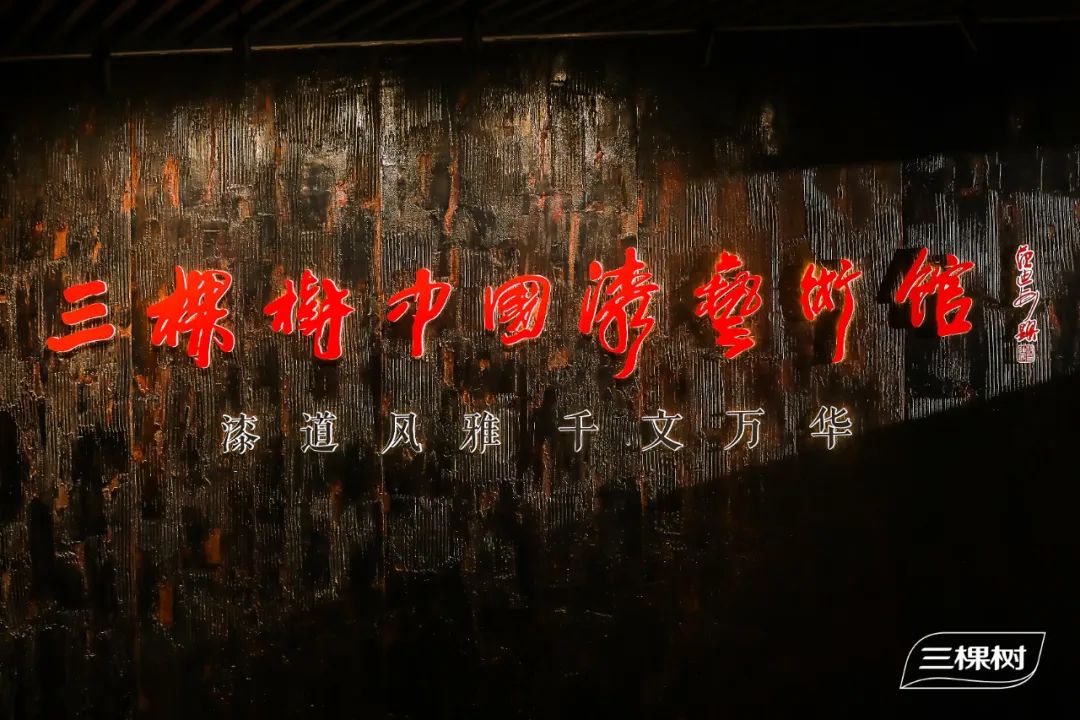 三棵樹中國漆藝術馆
漆道风雅千文万华
三棵树